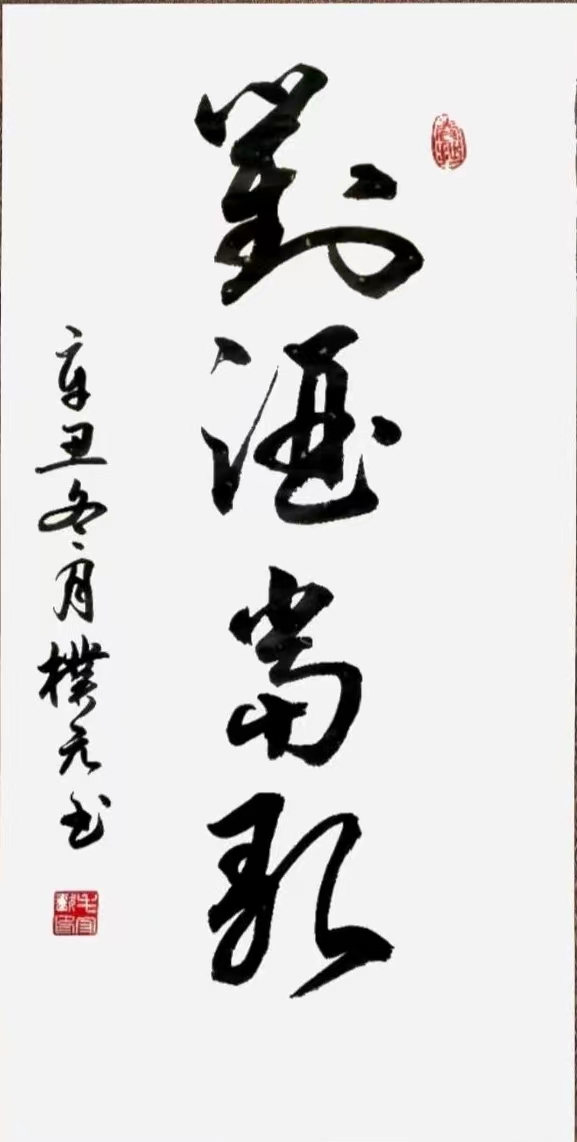 對酒當歌
辛丑冬月樸元书